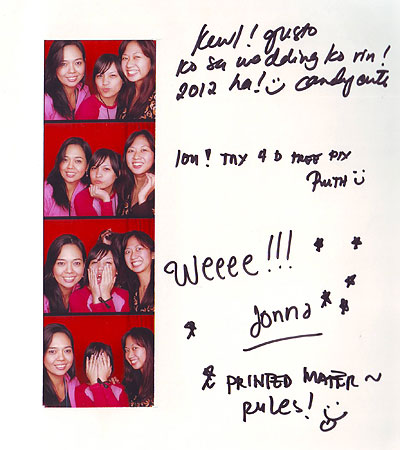 Kewl! gusto
ko sa wedding ko rin!
2012 ha! candycute
Lou! TNX 4 D FREE PIX
RUTH
Weeee!!!
Jonna
PRINTED MATER ~
rules!